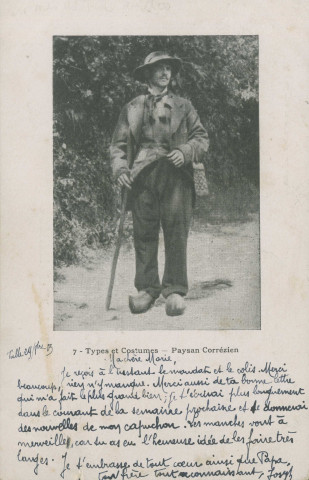 7 - Types et Costumes - Paysan Corrézien
Ma chère Marie,
Je reçois à l'instant le mandat et le colis. Merci
beaucoup, rien n'y manque. Merci aussi de ta bonne lettre
qui m'a fait le plus grand bien; je t'écrirai plus longuement
dans le courant de la semaine prochaine et te donnerai
des nouvelles de mon capuchon. Les manches vont à
merveille, car tu as eu l'heureuse idée de les faire très
larges. Je t'embrasse de tout cœur ainsi que Papa.
Ton frère tout reconnaissant, Joseph
Tulle